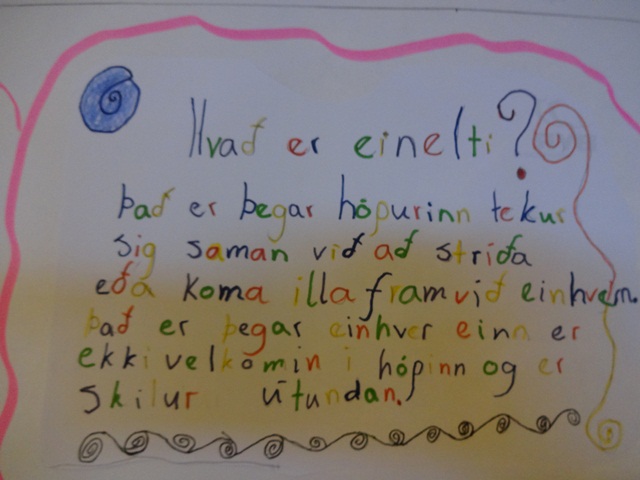 Hvað er einelti?
Það er þegar hópurinn tekur
sig saman við að stríða
eða koma illa fram við einhvern.
Það er þegar einhver einn er
ekki velkomin í hópinn og er
skilur útundan.